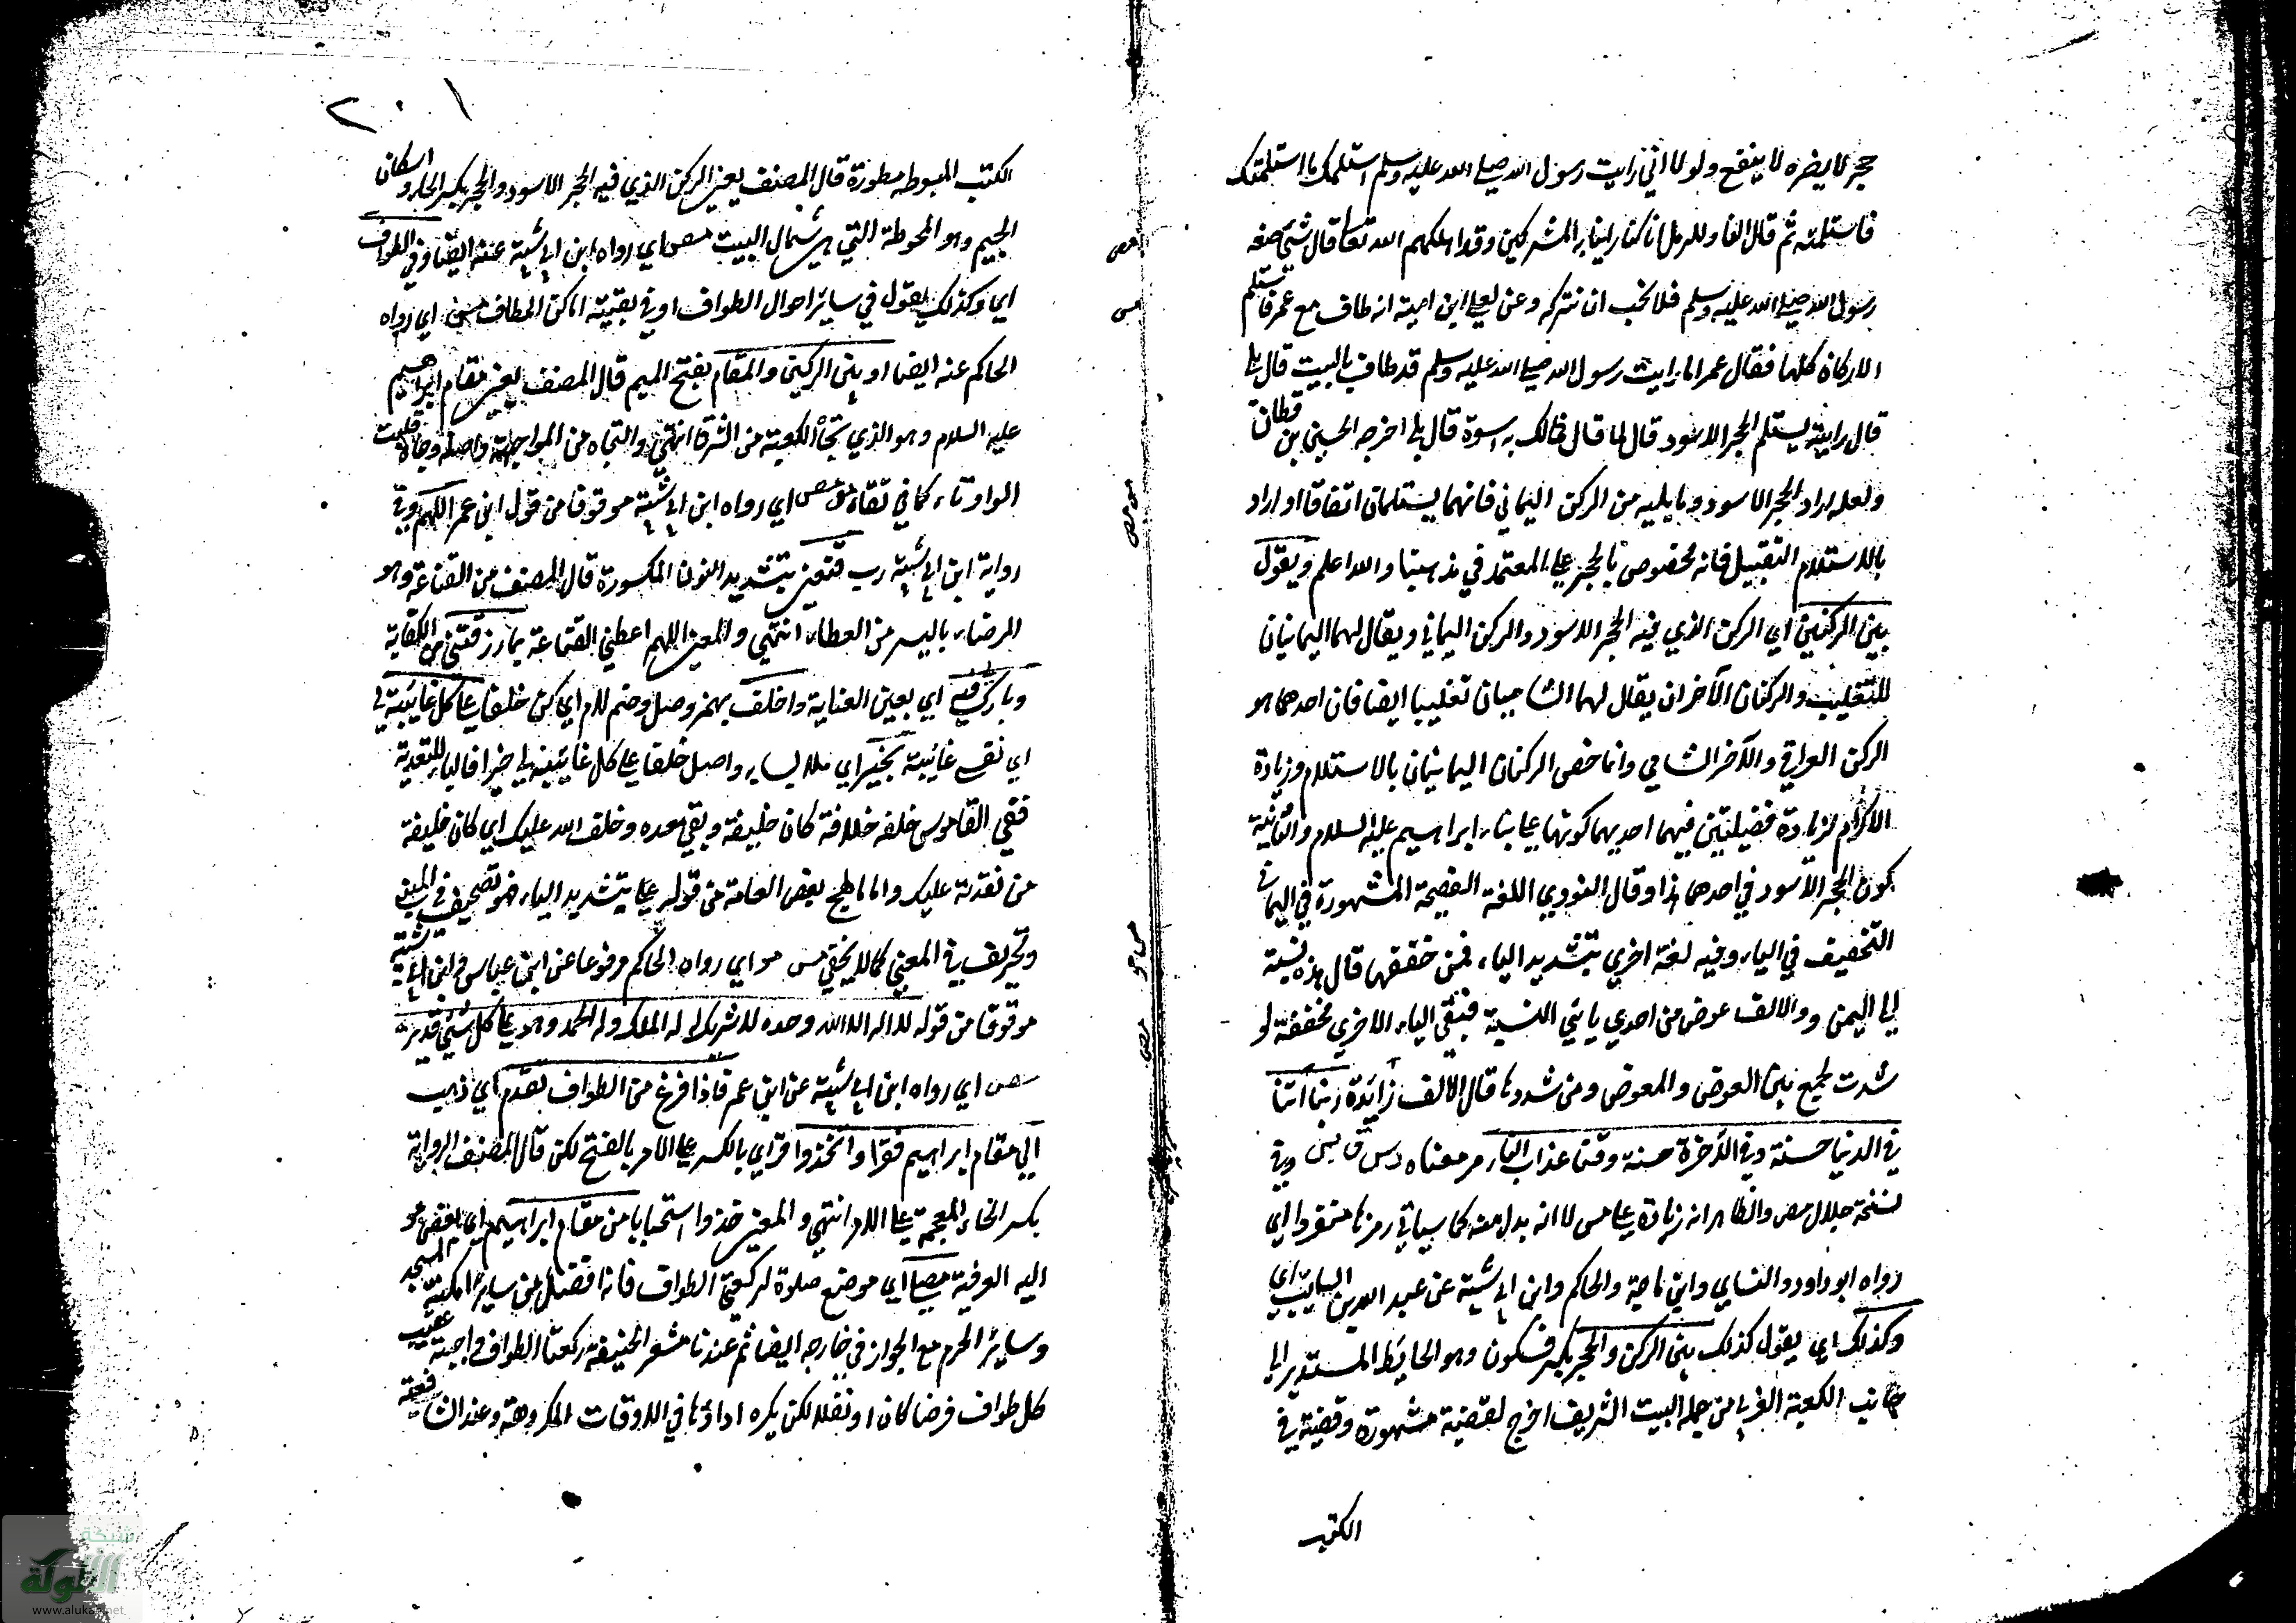 حجر لا يضره لا ينفع ولولا اني رايت رسول الله صلى الله عليه وسلم استلمك ما استلمتك
فاستلمته ثم قال الفا وللرمل انا كنا راينا به المشركين وقد اهلكهم الله تعا قال شيئ صنعه
رسول الله صلى الله عليه وسلم فلا نحب ان نتركه وعن يعلى ابن امية انه طاف مع عمر فاستلم
الاركان كلها فقال عمر اما رايت رسول الله صلى الله عليه وسلم قد طاف بالبيت قال بلى
قال رايته يستلم الحجر الاسود قال لا قال فمالك به اسوة قال بلى اخرجه الحسين بن قطان
ولعله اراد الحجر الاسود وما يليه من الركن اليماني فانهما يستلمان اتفاقا او اراد
بالاستلام التقبيل فانه مخصوص بالحجر على المعتمد في مذهبنا والله اعلم ويقول
بين الركنين اي الركن الذي فيه الحجر الاسود والركن اليماني ويقال لهما اليمانيان
للتغليب والركنان الآخران يقال لهما الشاميان تغليبا ايضا فان احدهما هو
الركن العراقي والآخر الشامي وانما خص الركنان اليمانيان بالاستلام وزيادة
الاكرام لزيادة فضيلتين فيهما احديهما كونهما على بناء ابراهيم عليه السلام والثانية
كون الحجر الاسود في احدهما هذا وقال النووي اللغة الفصيحة المشهورة في اليماني
التخفيف في الياء وفيه لغة اخرى بتشديد الياء فمن خففها قال هذه نسبة
الى اليمن والالف عوض من احدى يائي النسبة فبقي الياء الاخرى مخففة لو
شدت لجمع بين العوض والمعوض ومن شددها قال الالف زائدة ربنا اتنا
في الدنيا حسنة وفي الآخرة حسنة وقنا عذاب النار مر معناه دس ق مس وفي
نسخة جلال مص والظاهر انه زيادة على مس لا انه بدل منه كما سياتي رمزها منفردا اي
رواه ابو داود والنسائي وابن ماجة والحاكم وابن ابي شيبة عن عبد الله بن السايب اي
وكذلك اي يقول كذلك بين الركن والحجر بكسر فسكون وهو الحايط المستدير الى
جانب الكعبة الغربي من جملة البيت الشريف اخرج لقضية مشهورة وقضيته في
الكتب
٢٠١
الكتب المبسوطة مسطورة قال المصنف يعني الركن الذي فيه الحجر الاسود والحجر بكسر الحاء واسكان
الجيم وهو المحوطة التي هي شمال البيت مص اي رواه ابن ابي شيبة عنه ايضا وفي الطواف
اي وكذلك يقول في سائر احوال الطواف او في بقية اماكن المطاف مس اي رواه
الحاكم عنه ايضا او بين الركنين والمقام بفتح الميم قال المصنف يعني مقام ابراهيم
عليه السلام وهو الذي تجاه الكعبة من الشرق انتهى والتجاه من المواجهة واصله وجاه قلبت
الواو تاء كما في تقاة مو مص اي رواه ابن ابي شيبة موقوفا من قول ابن عمر اللهم وفي
رواية ابن ابي شيبة رب قنعني بتشديد النون المكسورة قال المصنف من القناعة وهو
الرضاء باليسير من العطاء انتهى والمعنى اللهم اعطني القناعة بما رزقتني من الكفاية
وبارك لي فيه اي بعين العناية واخلف بهمز وصل وضم لام اي كن خلفا على كل غائبة لي
اي نفس غائبة بخير اي ملابسا به واصل خلفا على كل غائبة لي خيرا فالباء للتعدية
ففي القاموس خلفه خلافة كان خليفة وبقي بعده وخلف الله عليك اي كان خليفة
من فقدته عليك واما ما لهج بعض العامة من قوله علي بتشديد الياء فهو تصحيف في المبنى
وتحريف في المعنى كما لا يخفى مس مو اي رواه الحاكم مرفوعا عن ابن عباس وابن ابي شيبة
موقوفا من قوله لا اله الا الله وحده لا شريك له له الملك وله الحمد وهو على كل شيئ قدير
مص اي رواه ابن ابي شيبة عن ابن عمر فاذا فرغ من الطواف تقدم اي ذهب
الى مقام ابراهيم فقرا واتخذوا قراي بالكسر على الامر بالفتح لكن قال المصنف الرواية
بكسر الخاء المعجمة على الامر انتهى والمعنى خذوا استحبابا من مقام ابراهيم اي بعض مو
اليه العرفية مصلى اي موضع صلوة لركعتي الطواف فانه افضل من سائر امكنة المسجد
وسائر الحرم مع الجواز في خارجه ايضا ثم عندنا معشر الحنيفة ركعتا الطواف واجبة عقيب
كل طواف فرضا كان او نفلا لكن يكره اداؤها في الاوقات المكروهة وعند الشافعية
مص
مس
مو مص
مس مو
مص
شبكة
الألوكة
www.alukah.net